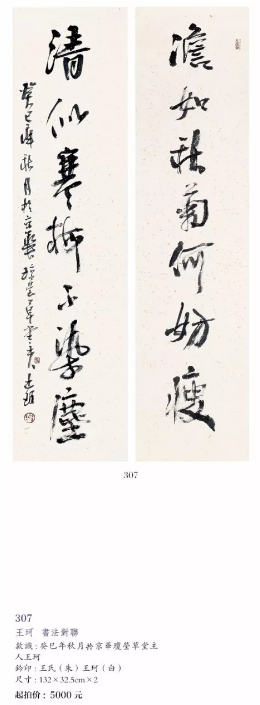 澹如秋菊何妨瘦
清似寒梅不染塵
癸巳年秋月於京華瓊瑩草堂主人王珂
307
307
王珂 書法對聯
款識：癸巳年秋月於京華瓊瑩草堂主
人王珂
鈐印：王氏（朱）王珂（白）
尺寸：132×32.5cm×2
起拍价：5000 元